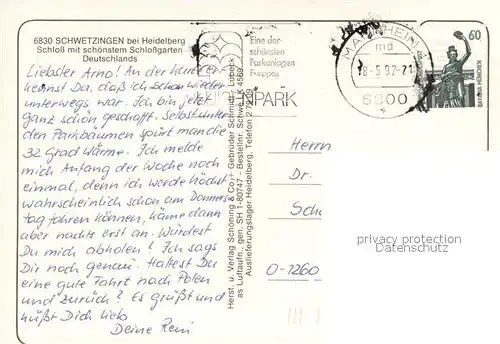 6830 SCHWETZINGEN bei Heidelberg
Schloß mit schönstem Schloßgarten
Deutschlands
Liebster Arno! An der Karte er-
kennst Du, daß ich schon wieder
unterwegs war. Ich bin jetzt
ganz schön geschafft. Selbst unter
den Parkbäumen spürt man die
32 Grad Wärme. Ich melde
mich Anfang der Woche noch
einmal, denn ich werde höchst
wahrscheinlich schon am Donners
tag fahren können, käme dann
aber nachts erst an. Würdest
Du mich abholen? Ich sags
Dir noch genau. Hattest Du
eine gute Fahrt nach Polen
und zurück? Es grüßt und
küßt Dich lieb
Deine
Herst. u. Verlag Schöning & Co. + Gebrüder Schmidt, Lübeck
as Luftaufn., gen. SH +80747 - Bestellnr. Schwet. L 4569
Auslieferungslager Heidelberg, Telefon 2 72 09
Eine der
schönsten
Parkanlagen
Europas
PARK
MANNHEIM
md
18-5.92-21
6800
60
BAVARIA MÜNCHEN
Herrn
Dr.
O-1260
privacy protection
Datenschutz